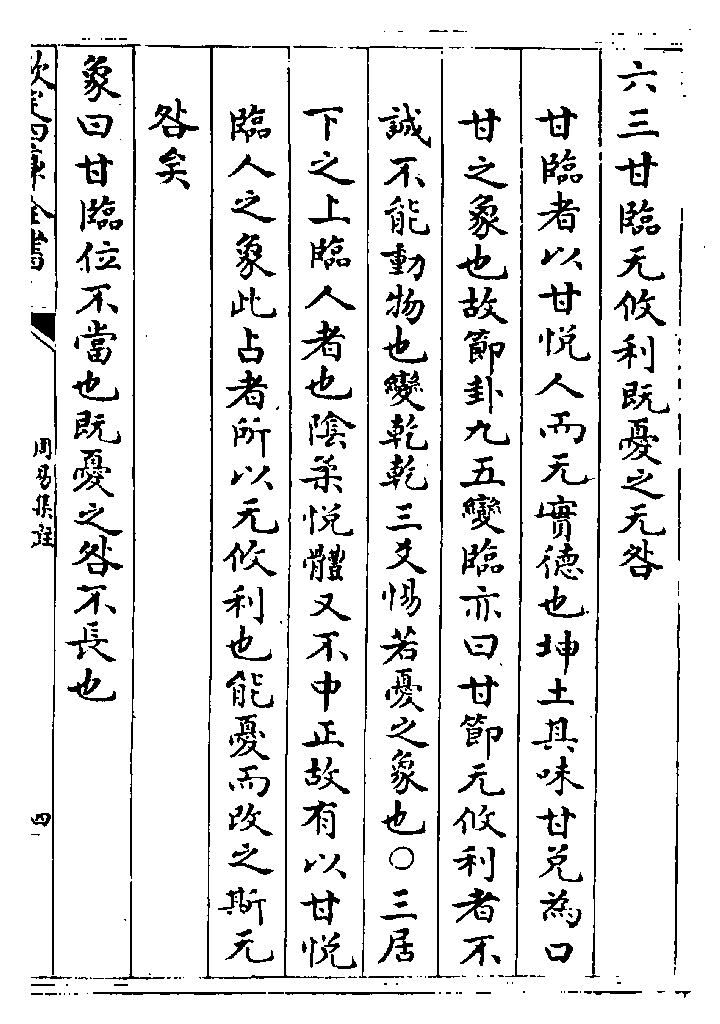 六三甘臨无攸利既憂之无咎
甘臨者以甘悅人而无實德也坤土其味甘兌為口
甘之象也故節卦九五變臨亦曰甘節无攸利者不
誠不能動物也變乾乾三爻惕若憂之象也○三居
下之上臨人者也陰柔悅體又不中正故有以甘悅
臨人之象此占者所以无攸利也能憂而改之斯无
咎矣
象曰甘臨位不當也既憂之咎不長也
欽定四庫全書
周易集註
四